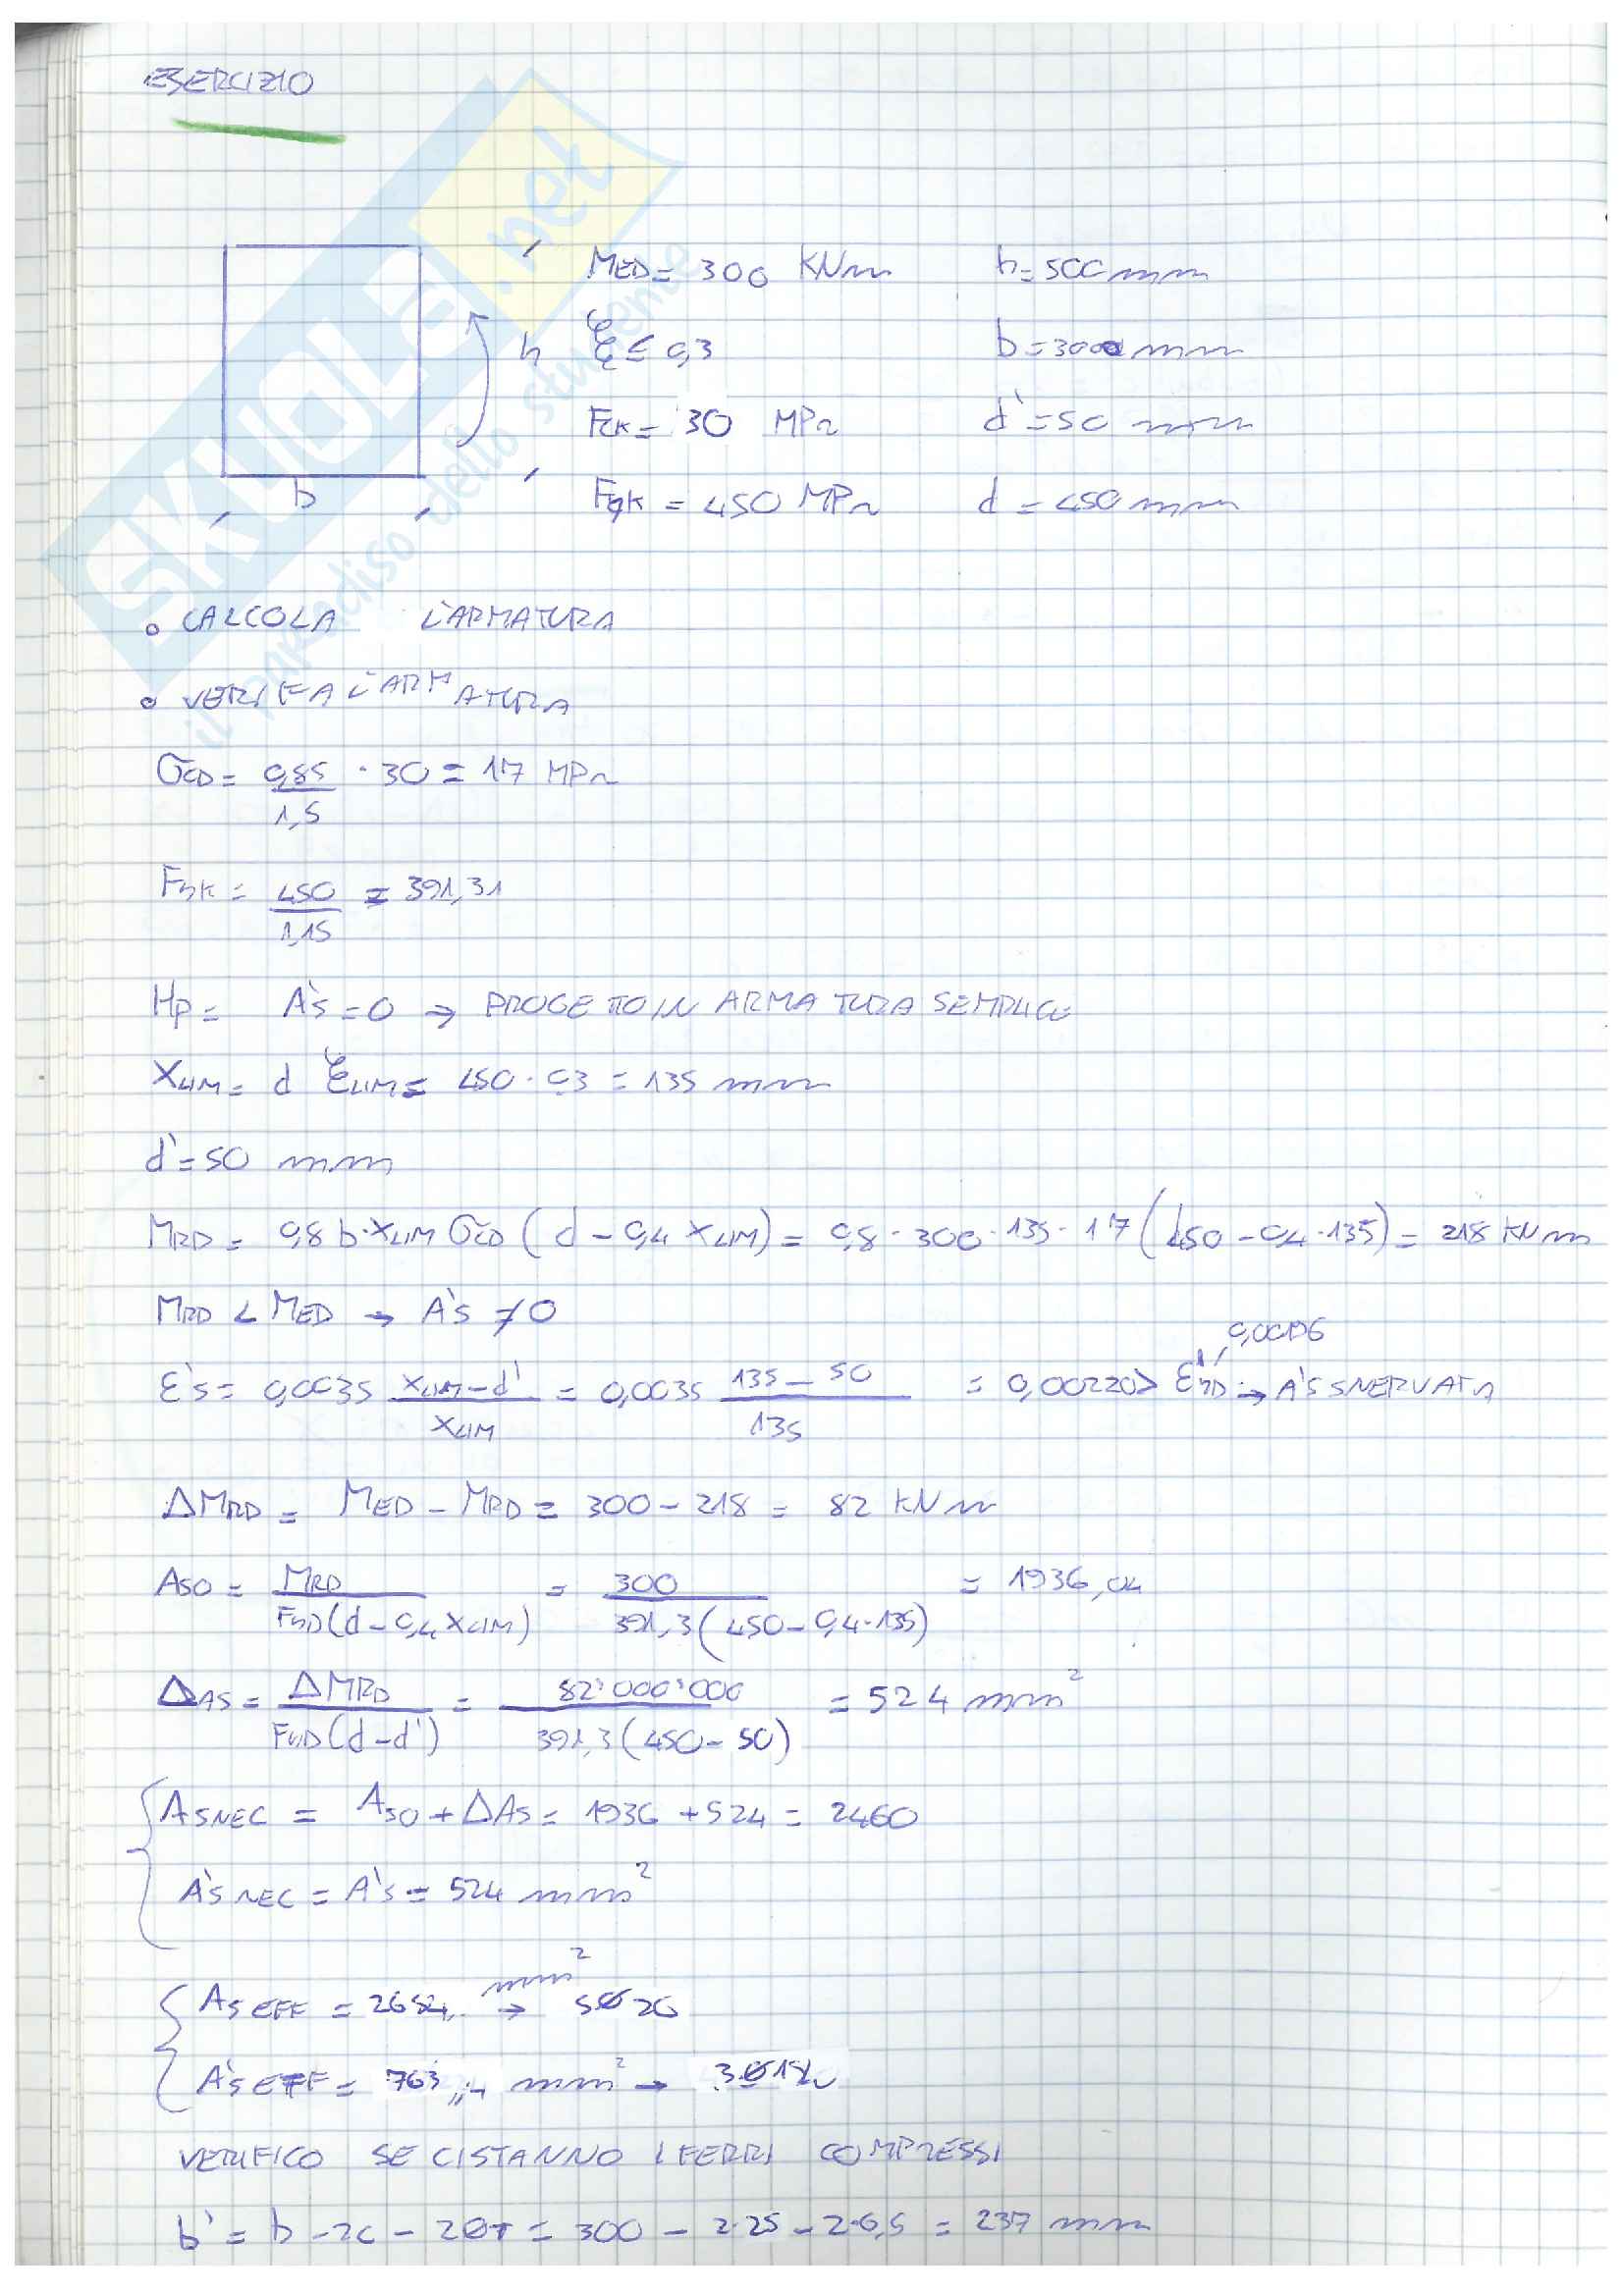 ESERCIZIO
MED = 300 KNm h = 500 mm
h ξ ≤ 0,3 b = 300 mm
FCK = 30 MPa d' = 50 mm
b FyK = 450 MPa d = 450 mm
• CALCOLA L'ARMATURA
• VERIFA L'ARMATURA
σCD = 0,85/1,5 · 30 = 17 MPa
FSK = 450/1,15 = 391,31
Hp = A's = 0 → PROGETTO IN ARMATURA SEMPLICE
XLIM = d ξLIM = 450 · 0,3 = 135 mm
d' = 50 mm
MRD = 0,8 b · XLIM σCD (d - 0,4 XLIM) = 0,8 · 300 · 135 · 17 (450 - 0,4 · 135) = 218 KNm
MRD < MED → A's ≠ 0
0,00196
ε's = 0,0035 (XLIM - d')/XLIM = 0,0035 (135 - 50)/135 = 0,00220 > ε'SD → A's SNERVATA
ΔMRD = MED - MRD = 300 - 218 = 82 KNm
ASO = MRD/(FSD(d - 0,4 XLIM)) = 300/(391,3(450 - 0,4 · 135)) = 1936,04
ΔAS = ΔMRD/(FSD(d - d')) = 82'000'000/(391,3(450 - 50)) = 524 mm²
ASNEC = ASO + ΔAS = 1936 + 524 = 2460
A'SNEC = A's = 524 mm²
AS EFF = 2654 mm² → 5Ø26
A'S EFF = 763,4 mm² → 3Ø18
VERIFICO SE CI STANNO I FERRI COMPRESSI
b' = b - 2c - 2ØT = 300 - 2·25 - 2·6,5 = 237 mm
SKUOLA.net
il paradiso dello studente